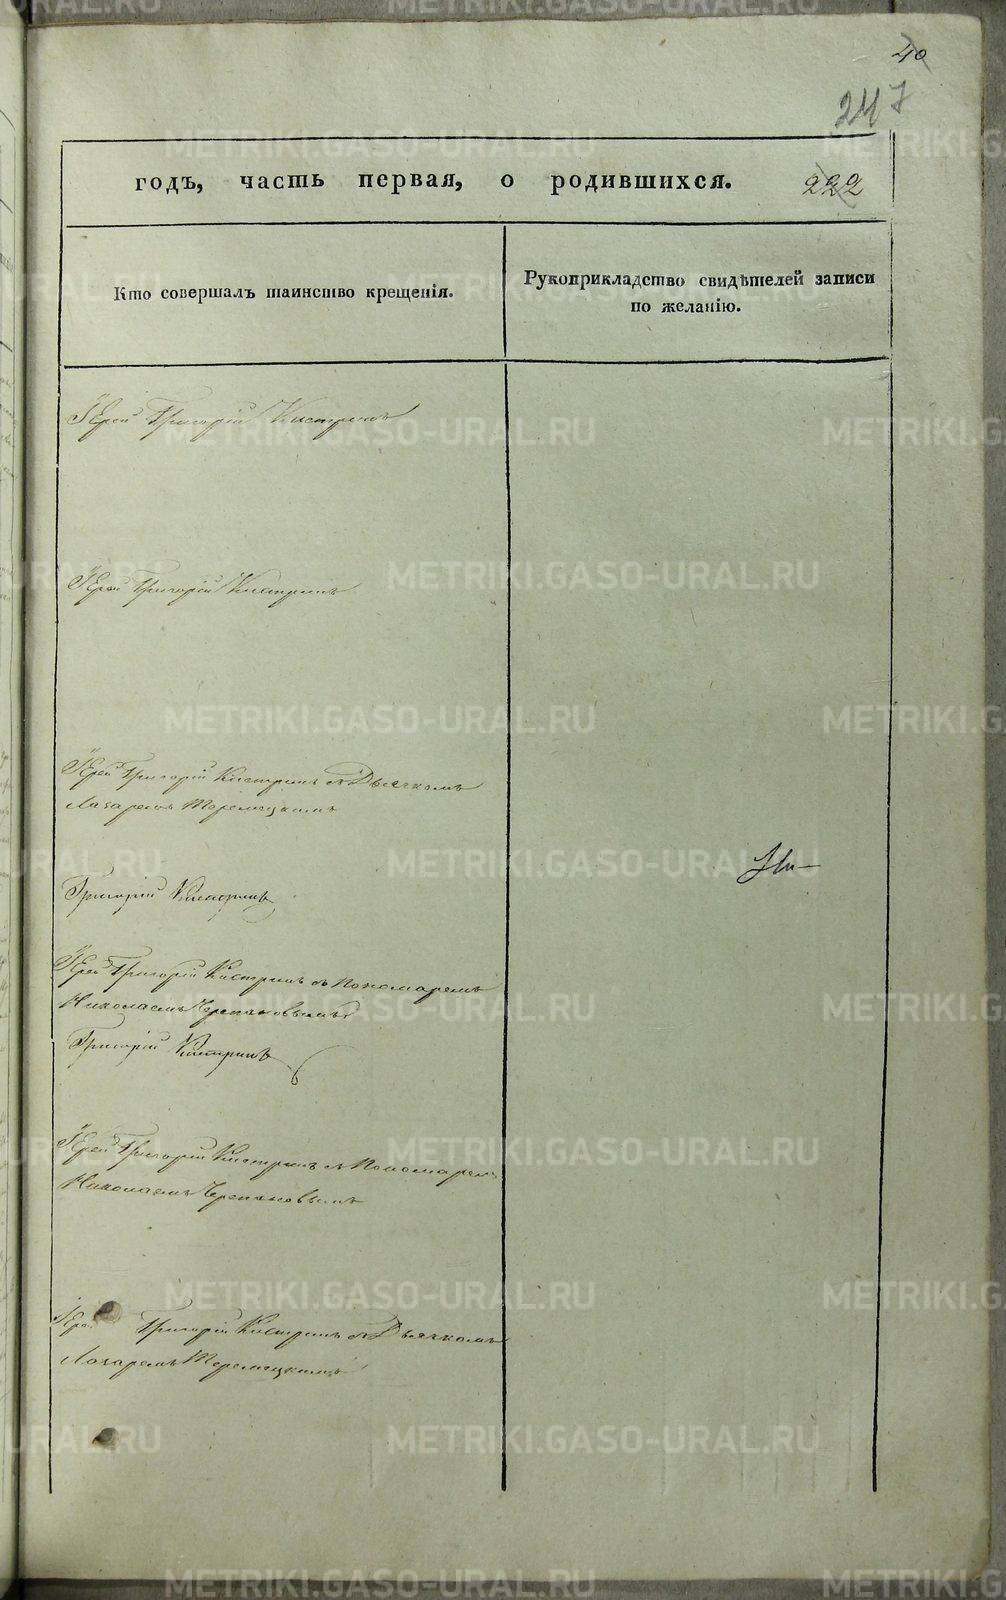 40
247
годъ, часть первая, о родившихся. 222
Кто совершалъ таинство крещенія.
Рукоприкладство свидѣтелей записи
по желанію.
Іерей Григорій Кистринъ
Іерей Григорій Кистринъ
Іерей Григорій Кистринъ съ Дьячкомъ
Лазаремъ
Григорій Кистринъ
Іерей Григорій Кистринъ съ Пономаремъ
Николаемъ Черепановымъ
Григорій Кистринъ
Іерей Григорій Кистринъ съ Пономаремъ
Николаемъ Черепановымъ
Іерей Григорій Кистринъ съ Дьячкомъ
Лазаремъ
METRIKI.GASO-URAL.RU